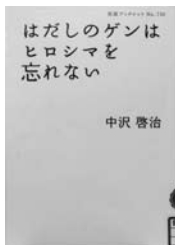 岩波ブックレット No. 735
はだしのゲンは
ヒロシマを
忘れない
中沢 啓治